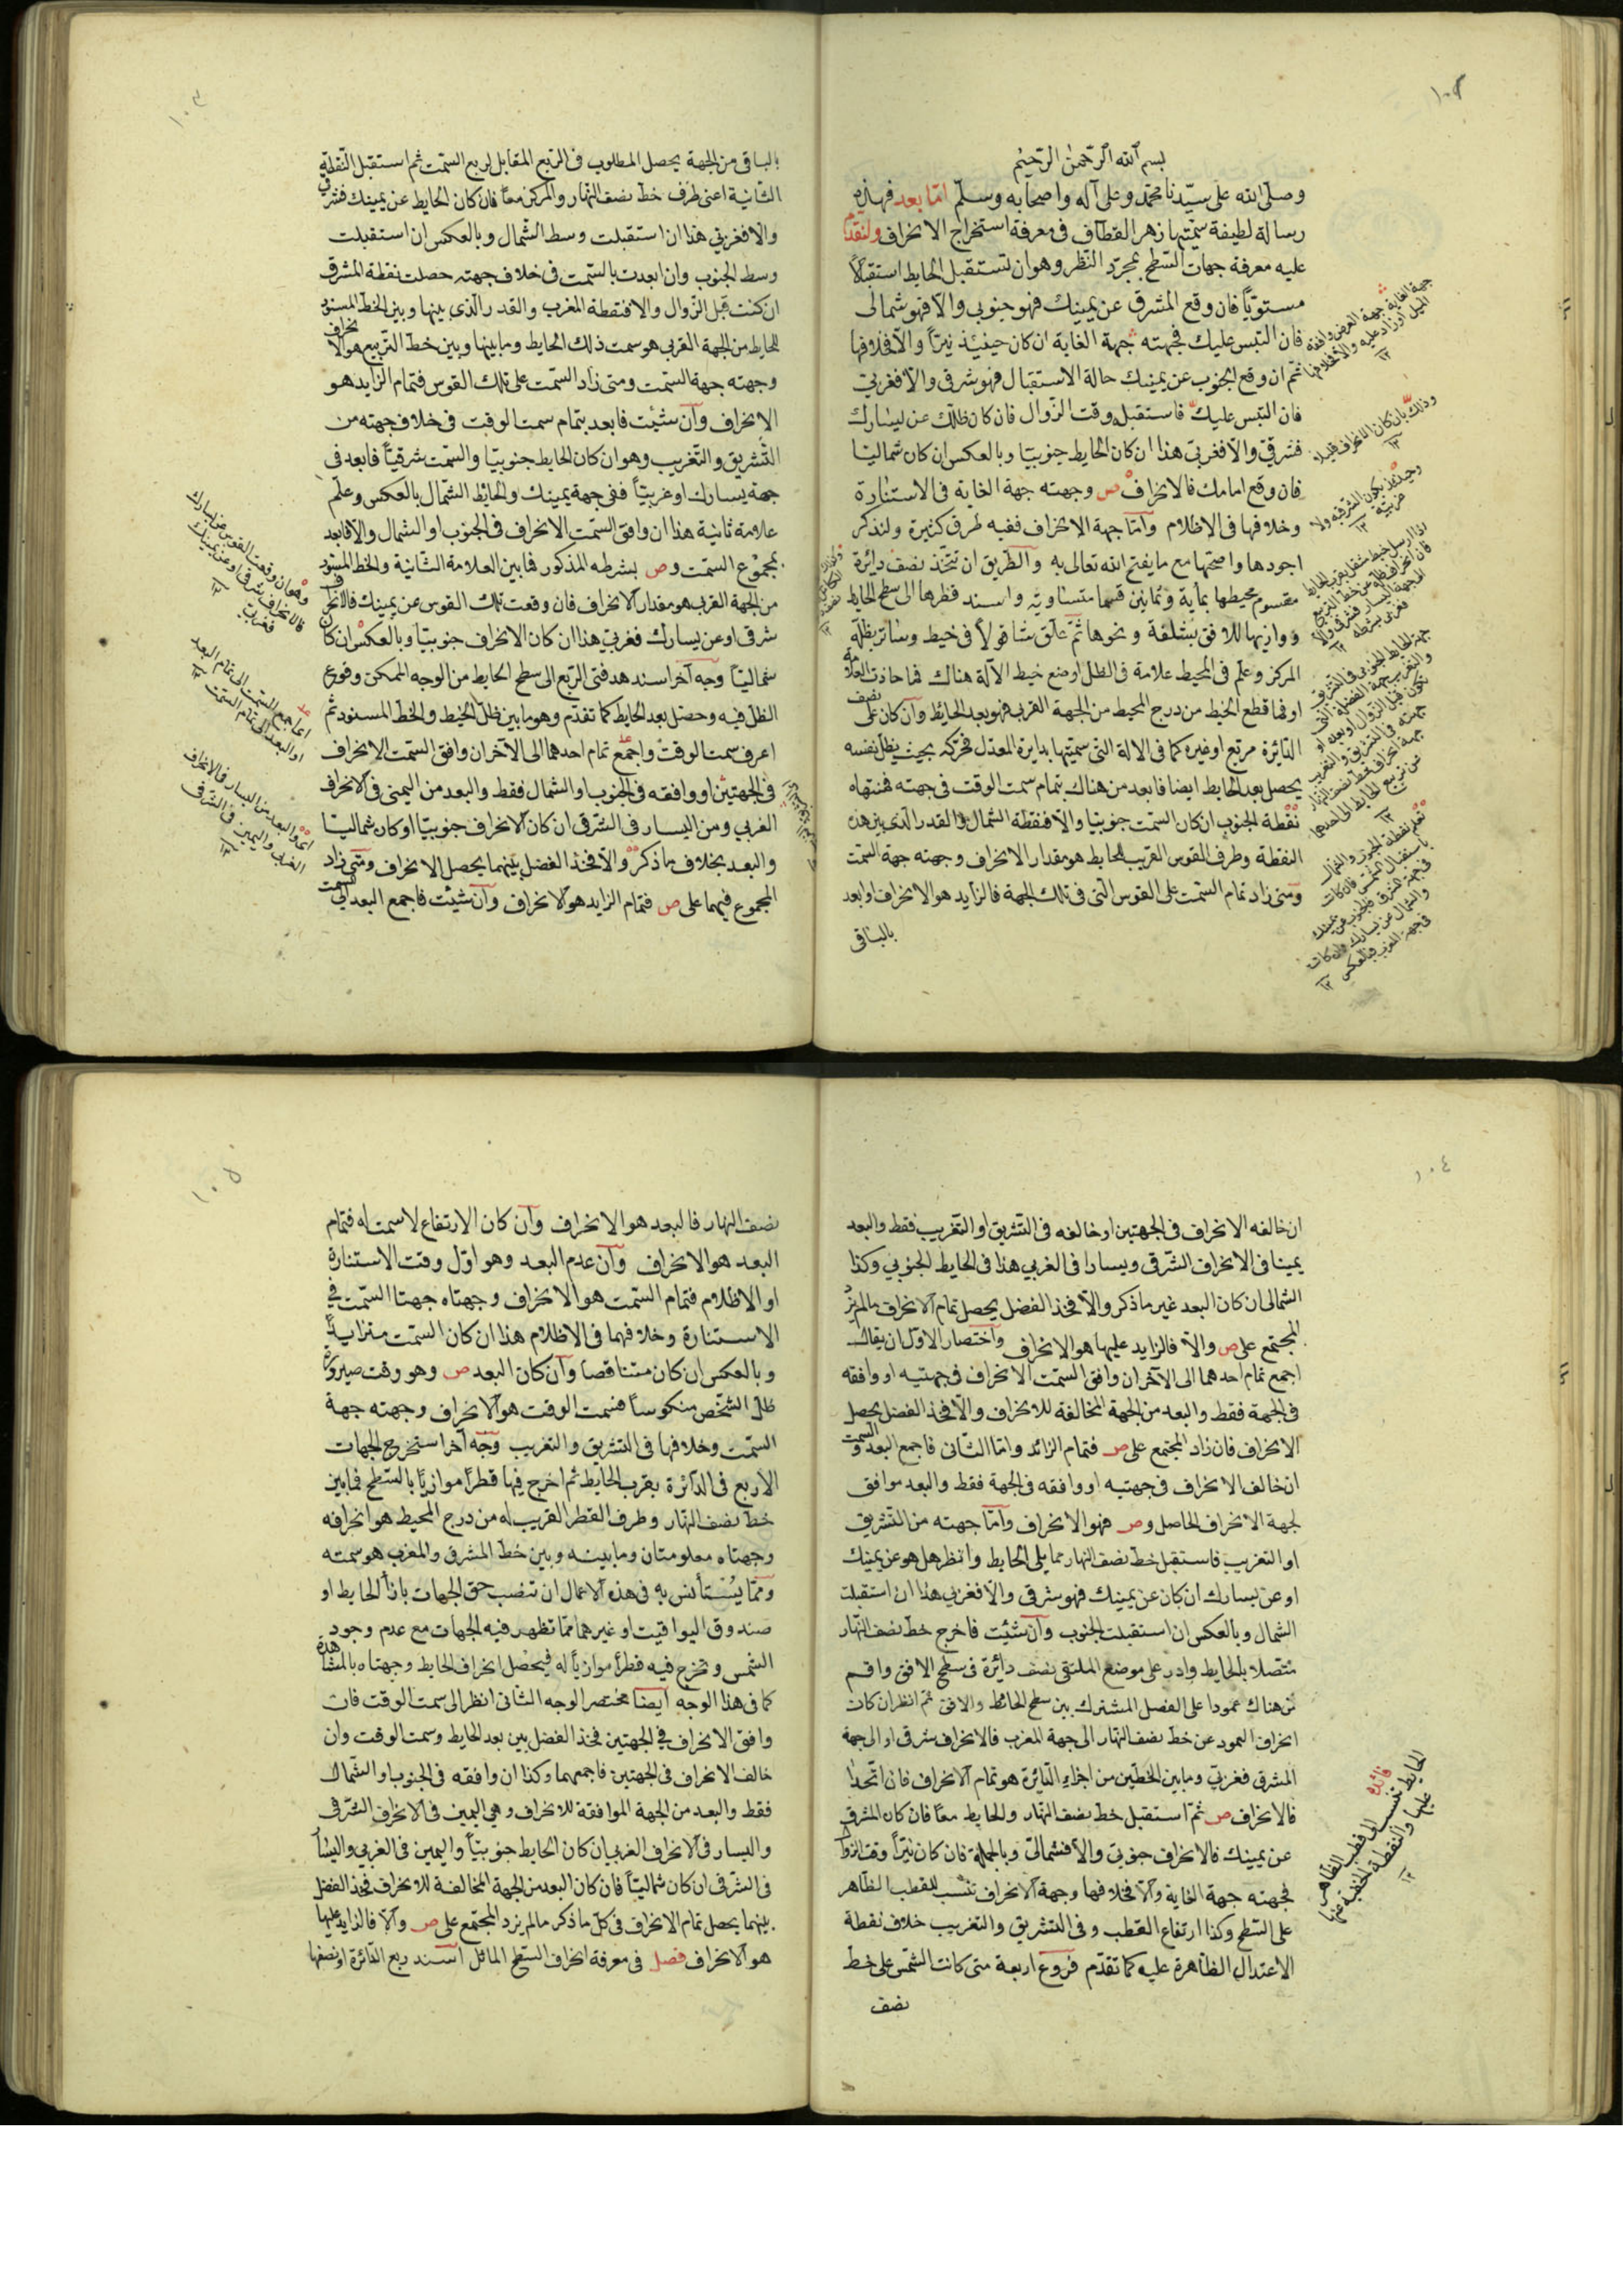 ١٠٢
بسم الله الرحمن الرحيم
وصلى الله على سيدنا محمد وعلى آله واصحابه وسلم اما بعد فهذه
رسالة لطيفة سميتها زهر القطاف في معرفة استخراج الانحراف ولنقدم
عليه معرفة جهات السطح بمجرد النظر وهو ان تستقبل الحايط استقبالا
مستويا فان وقع المشرق عن يمينك فهو جنوبي والا فهو شمالى
فان التبس عليك فجهته جهة الغاية ان كان حينئذ نيرا والا فخلافها
ثم ان وقع الجنوب عن يمينك حالة الاستقبال فهو شرقي والا فغربي
فان التبس عليك فاستقبله وقت الزوال فان كان ظلك عن يسارك
فشرقي والا فغربي هذا ان كان الحايط جنوبيا وبالعكس ان كان شماليا
فان وقع امامك فالانحراف ص وجهته جهة الغاية في الاستنارة
وخلافها في الاظلام واما جهة الانحراف ففيه طرق كثيرة ولنذكر
اجودها واصحها مع ما يفتح الله تعالى به والطريق ان تتخذ نصف دايرة
مقسوم محيطها بمأية وثمانين قسما متساوية واسند قطرها الى سطح الحايط
ووازيها للافق بثقلة ونحوها ثم علق شاقولا في خيط وساتر بظله
المركز وعلم في المحيط علامة في الظل اوضع خيط الآلة هناك فما حاذت العلامة
او فما قطع الخيط من درج المحيط من الجهة القربى فهو بعد الحايط وان كان على نصف
الدائرة مربع او غيره كما في الالة التي سميتها بدايرة المعدل فحركه بحيث يظل نفسه
يحصل بعد الحايط ايضا فابعد من هناك بتمام سمت الوقت في جهته فمنتهاه
نقطة الجنوب ان كان السمت جنوبيا والا فنقطة الشمال والقدر الذي بين هذه
النقطة وطرف القوس القريب للحايط هو مقدار الانحراف وجهته جهة السمت
ومتى زاد تمام السمت على القوس التي في تلك الجهة فالزايد هو الانحراف او ابعد
بالباقى
١٠٣
بالباقي من الجهة يحصل المطلوب في الربع المقابل لربع السمت ثم استقبل النقطة
الثانية اعنى طرف خط نصف النهار والمركز معا فان كان الحايط عن يمينك فشرقي
والا فغربي هذا ان استقبلت وسط الشمال وبالعكس ان استقبلت
وسط الجنوب وان ابعدت بالسمت في خلاف جهته حصلت نقطة المشرق
ان كنت قبل الزوال والا فنقطة المغرب والقدر الذي بينها وبين الخط المسنود
للحايط من الجهة القربى هو سمت ذلك الحايط وما بينها وبين خط التربيع هو الانحراف
وجهته جهة السمت ومتى زاد السمت على تلك القوس فتمام الزايد هو
الانحراف وان شئت فابعد بتمام سمت الوقت في خلاف جهته من
التشريق والتغريب وهو ان كان الحايط جنوبيا والسمت شرقيا فابعد في
جهة يسارك او غربيا ففي جهة يمينك والحائط الشمال بالعكس وعلم
علامة ثانية هذا ان وافق السمت الانحراف في الجنوب او الشمال والا فابعد
بمجموع السمت وص بشرطه المذكور فما بين العلامة الثانية والخط المسنود
من الجهة القربى هو مقدار الانحراف فان وقعت تلك القوس عن يمينك فالانحراف
شرقي او عن يسارك فغربي هذا ان كان الانحراف جنوبيا وبالعكس ان كان
شماليا وجه آخر اسند هدفتى الربع الى سطح الحايط من الوجه الممكن وقوع
الظل فيه وحصل بعد الحايط كما تقدم وهو ما بين ظل الخيط والخط المسنود ثم
اعرف سمت الوقت واجمع تمام احدهما الى الآخر ان وافق السمت الانحراف
في الجهتين او وافقه في الجنوب او الشمال فقط والبعد من اليمنى في الانحراف
الغربي ومن اليسار في الشرقي ان كان الانحراف جنوبيا او كان شماليا
والبعد بخلاف ما ذكر والا فخذ الفضل بينهما يحصل الانحراف ومتى زاد
المجموع فيهما على ص فتمام الزايد هو الانحراف وان شئت فاجمع البعد الى السمت
١٠٤
ان خالفه الانحراف في الجهتين او خالفه في التشريق او التغريب فقط والبعد
يمينا في الانحراف الشرقي ويسارا في الغربي هذا في الحايط الجنوبي وكذا
الشمالى ان كان البعد غير ما ذكر والا فخذ الفضل يحصل تمام الانحراف ما لم يزد
المجتمع على ص والا فالزايد عليها هو الانحراف واختصار الاول ان يقال
اجمع تمام احدهما الى الآخر ان وافق السمت الانحراف في جهتيه او وافقه
في الجهة فقط والبعد من الجهة المخالفة للانحراف والا فخذ الفضل يحصل
الانحراف فان زاد المجتمع على ص فتمام الزائد واما الثاني فاجمع البعد والسمت
ان خالف الانحراف في جهتيه او وافقه في الجهة فقط والبعد موافق
لجهة الانحراف الحاصل وص فهو الانحراف واما جهته من التشريق
او التغريب فاستقبل خط نصف النهار مما يلى الحايط وانظر هل هو عن يمينك
او عن يسارك ان كان عن يمينك فهو شرقي والا فغربي هذا ان استقبلت
الشمال وبالعكس ان استقبلت الجنوب وان شئت فاخرج خط نصف النهار
متصلا بالحايط وادر على موضع الملتقى نصف دائرة في سطح الافق واقم
من هناك عمودا على الفصل المشترك بين سطح الحائط والافق ثم انظر ان كان
انحراف العمود عن خط نصف النهار الى جهة المغرب فالانحراف شرقي او الى جهة
المشرق فغربي وما بين الخطين من اجزاء الدائرة هو تمام الانحراف فان اتحدا
فالانحراف ص ثم استقبل خط نصف النهار والحايط معا فان كان المشرق
عن يمينك فالانحراف جنوبي والا فشمالى وبالجملة فان كان نيرا وقت الزوال
فجهته جهة الغاية والا فخلافها وجهة الانحراف تنسب للقطب الظاهر
على السطح وكذا ارتفاع القطب وفي التشريق والتغريب خلاف نقطة
الاعتدال الظاهرة عليه كما تقدم فروع اربعة متى كانت الشمس على خط
نصف
فائدة
الحايط تنسب الى قطر الظاهر
عليها والنقطة الخفية عنها
١٢
١٠٥
نصف النهار فالبعد هو الانحراف وان كان الارتفاع لا سمت له فتمام
البعد هو الانحراف وان عدم البعد وهو اول وقت الاستنارة
او الاظلام فتمام السمت هو الانحراف وجهتاه جهتا السمت في
الاستنارة وخلافهما في الاظلام هذا ان كان السمت متزايدا
وبالعكس ان كان متناقصا وان كان البعد ص وهو وقت صيرورة
ظل الشخص منكوسا فسمت الوقت هو الانحراف وجهته جهة
السمت وخلافها في التشريق والتغريب وجه آخر استخرج الجهات
الاربع في الدائرة بقرب الحايط ثم اخرج فيها قطرا موازيا بالسطح فما بين
خط نصف النهار وطرف القطر القريب له من درج المحيط هو انحرافه
وجهتاه معلومتان وما بينه وبين خط المشرق والمغرب هو سمته
ومما يستأنس به في هذه الاعمال ان تنصب حق الجهات بازاء الحايط او
صندوق اليواقيت او غيرهما مما تظهر فيه الجهات مع عدم وجود
الشمس وتخرج فيه قطرا موازيا له فيحصل انحراف الحايط وجهتاه بالمشاهدة
كما في هذا الوجه ايضا مختصر الوجه الثاني انظر الى سمت الوقت فان
وافق الانحراف في الجهتين فخذ الفضل بين بعد الحايط وسمت الوقت وان
خالف الانحراف في الجهتين فاجمعهما وكذا ان وافقه في الجنوب او الشمال
فقط والبعد من الجهة الموافقة للانحراف وهي اليمين في الانحراف الشرقي
واليسار في الانحراف الغربي ان كان الحايط جنوبيا واليمين في الغربي واليسار
في الشرقي ان كان شماليا فان كان البعد من الجهة المخالفة للانحراف فخذ الفضل
بينهما يحصل تمام الانحراف في كل ما ذكر ما لم يزد المجتمع على ص والا فالزايد عليها
هو الانحراف فصل في معرفة انحراف السطح المائل اسند ربع الدائرة او نصفها